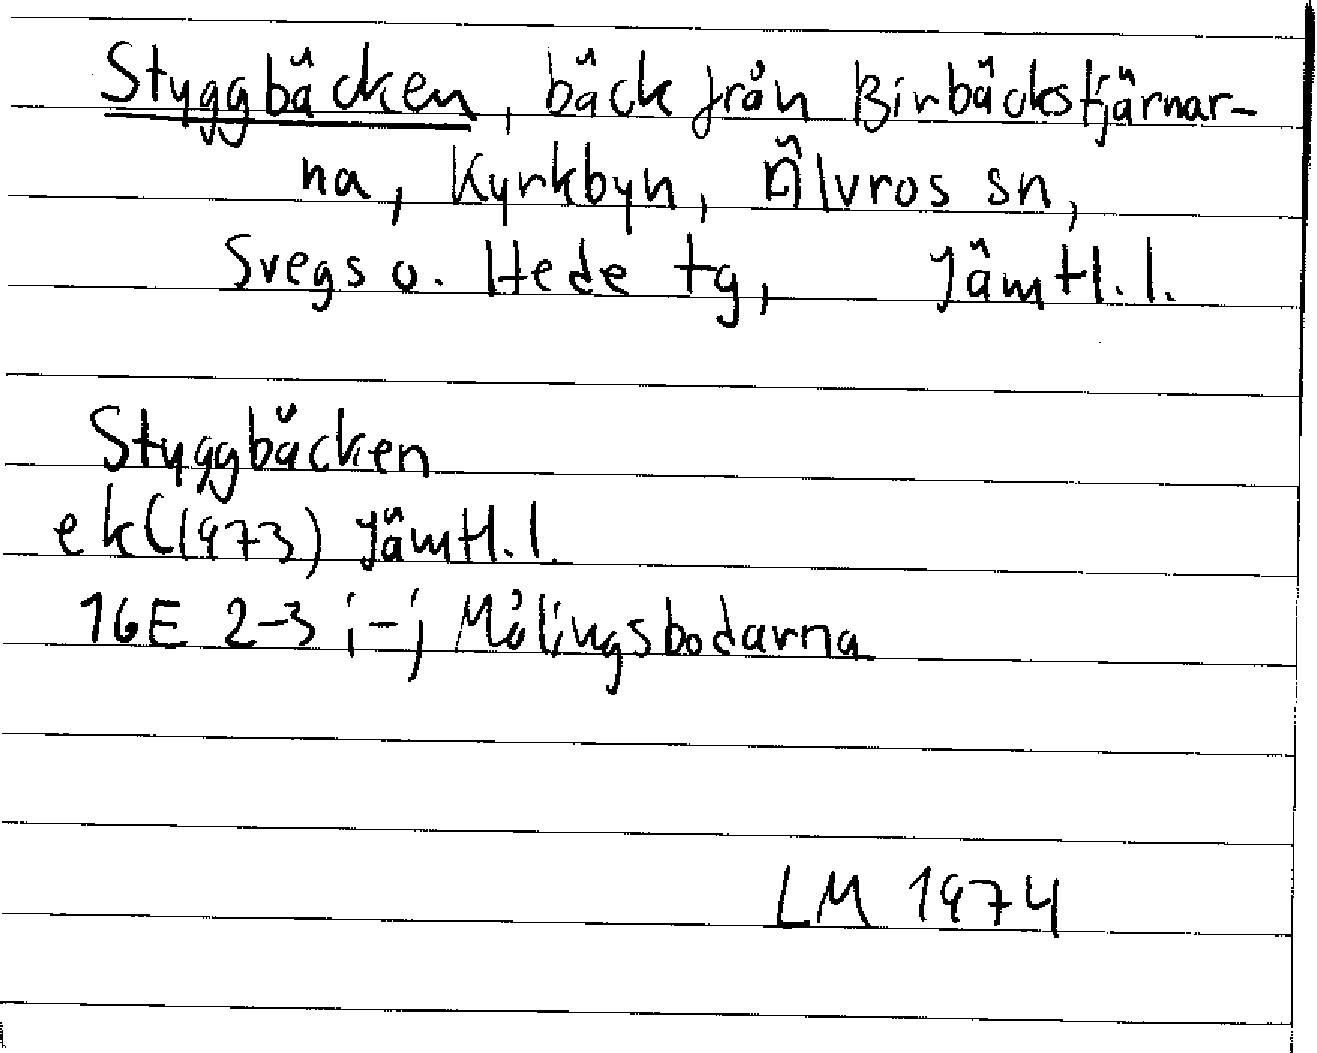 Styggbäcken, bäck från Birbäckstjärnar-
na, Kyrkbyn, Älvros sn,
Svegs o. Hede tg, Jämtl. l.
Styggbäcken
ek (1973) Jämtl. l.
16E 2-3 i-j Målingsbodarna
LM 1974